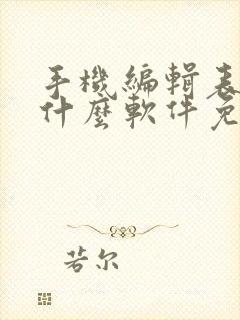 手機編輯表
什麼軟件免
若尔